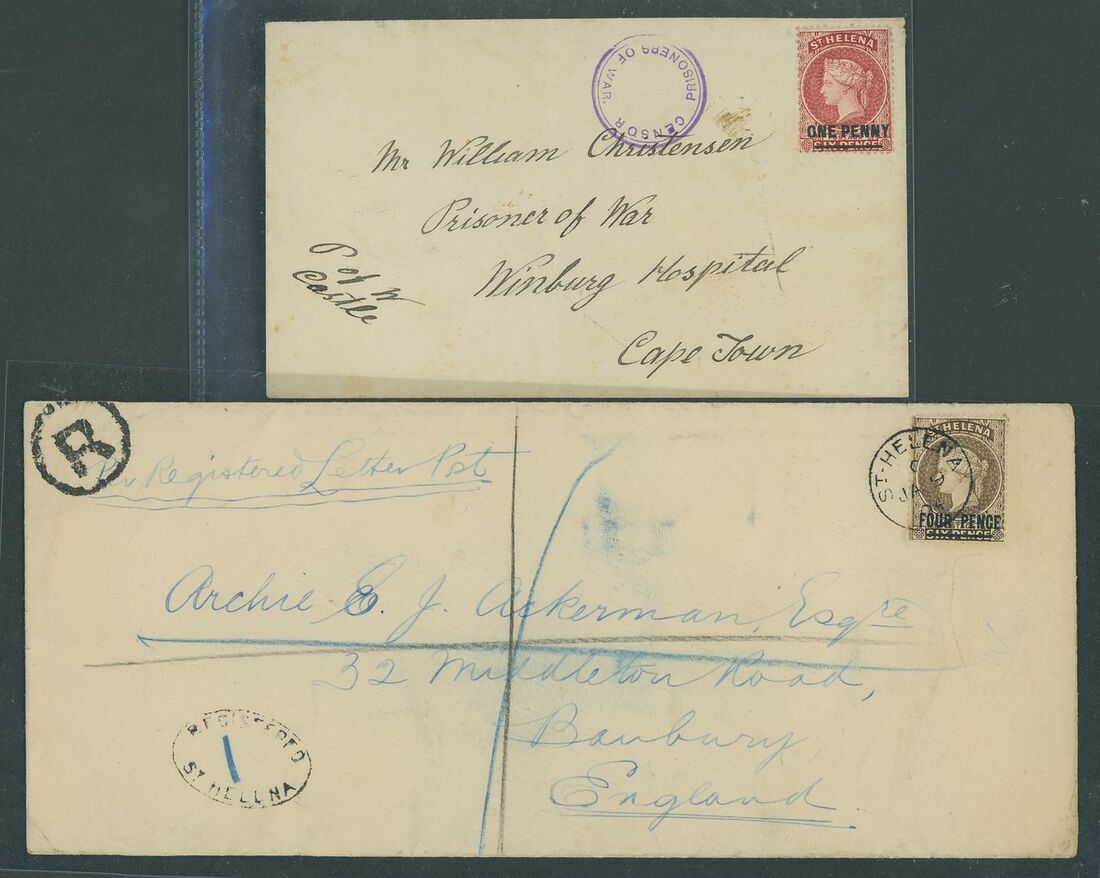 ST HELENA
ONE PENNY
SIX PENCE
PRISONERS OF WAR.
CENSOR
Mr William Christensen
Prisoner of War
Winburg Hospital
Cape Town
P of W
Castle
R
Registered Letter Post
ST HELENA
FOUR PENCE
SIX PENCE
ST. HELENA
C
JA 9
Archie E. J. Ackerman, Esqre
32 Middleton Road,
Banbury,
England
REGISTERED
1
ST HELENA